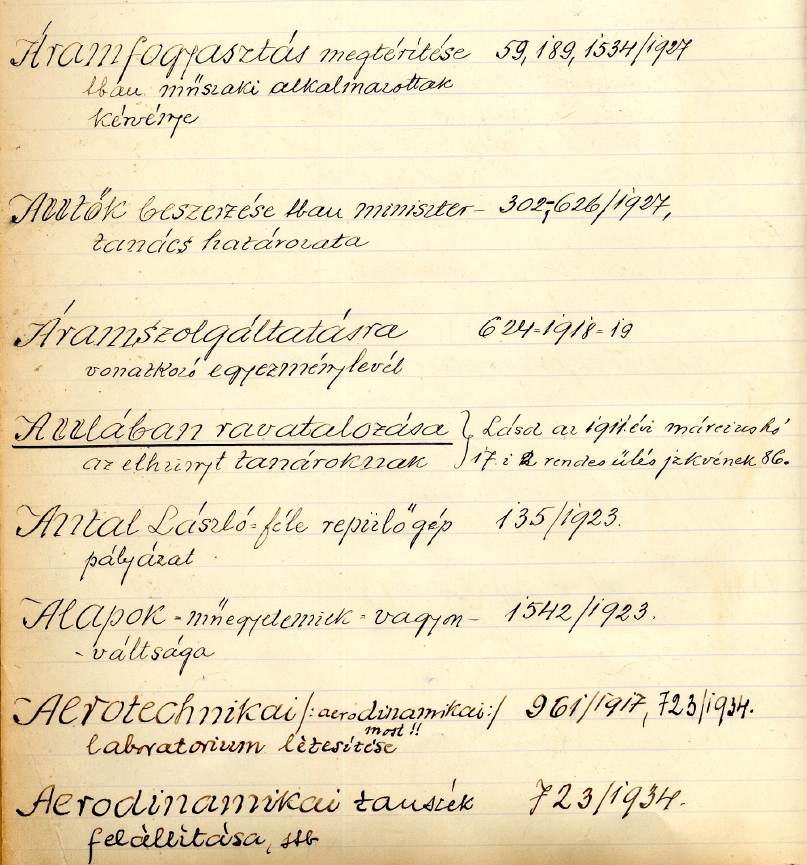 Áramfogyasztás megtérítése 59, 189, 1534/1927
tbau műszaki alkalmazottak
kérvénye
Autók beszerzése tbau miniszter- 302-626/1927,
tanács határozata
Áramszolgáltatásra 624-1918-19
vonatkozó egyezménylevél
Aulában ravatalozása } Lásd az 1911.évi március hó
az elhúnyt tanároknak 17.i 2 rendes ülés jzkvének 86.
Antal László-féle repülőgép 135/1923.
pályázat
Alapok - műegyetemiek - vagyon- 1542/1923.
-váltsága
Aerotechnikai /:aerodinamikai:/ 961/1917, 723/1934.
most!!
laboratorium létesítése
Aerodinamikai tanszék 723/1934.
felállítása, stb